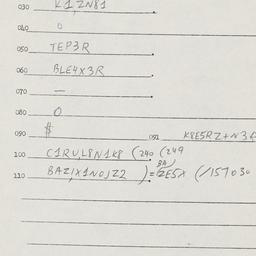 030 K1,ZN81
040 0
050 TEP3R
060 BLE4X3R
070 —
080 0
090 $ 091 K8E5RZ+N3
100 C1RU,L8N1K8 (240 (249
110 BAZ1X1NO,Z2 )= ZE5X (/157030